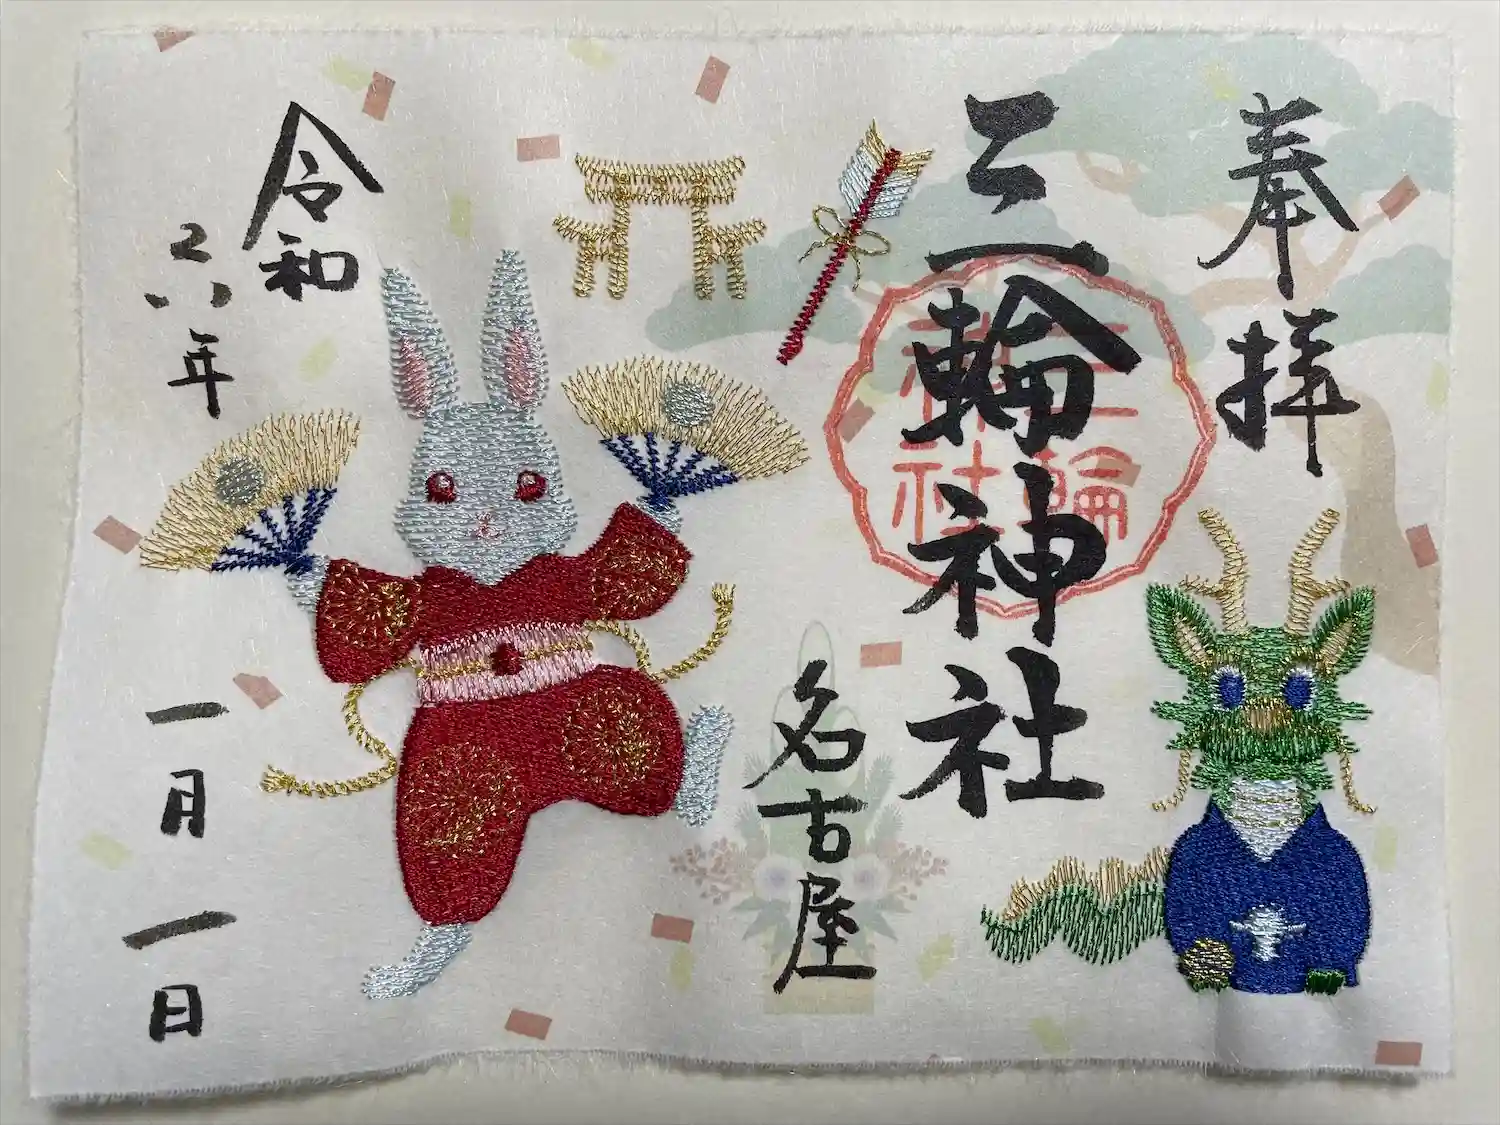 奉拝
三輪神社
三輪
神社
名古屋
令和
六年
一月
一日